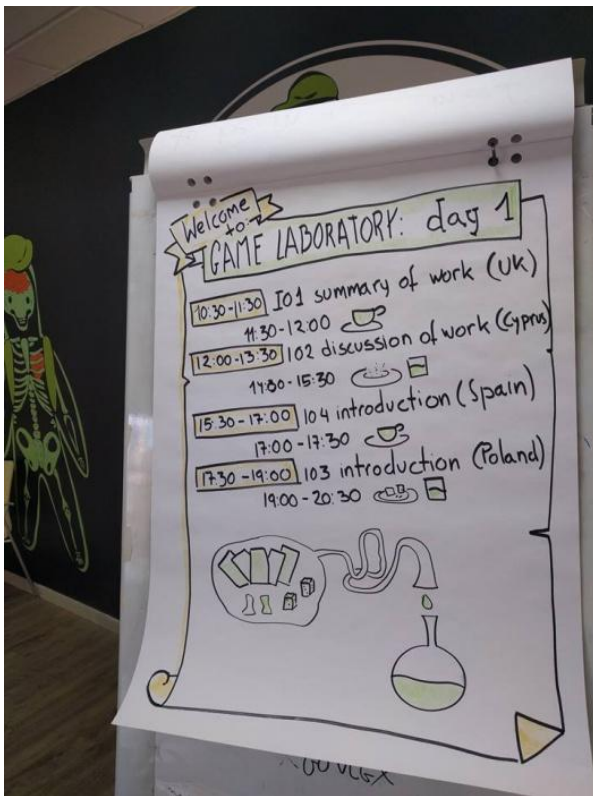 Welcome
to:
GAME LABORATORY: day 1
10:30-11:30 IO1 summary of work (UK)
11:30-12:00
12:00-13:30 IO2 discussion of work (Cyprus)
14:30-15:30
15:30-17:00 IO4 introduction (Spain)
17:00-17:30
17:30-19:00 IO3 introduction (Poland)
19:00-20:30